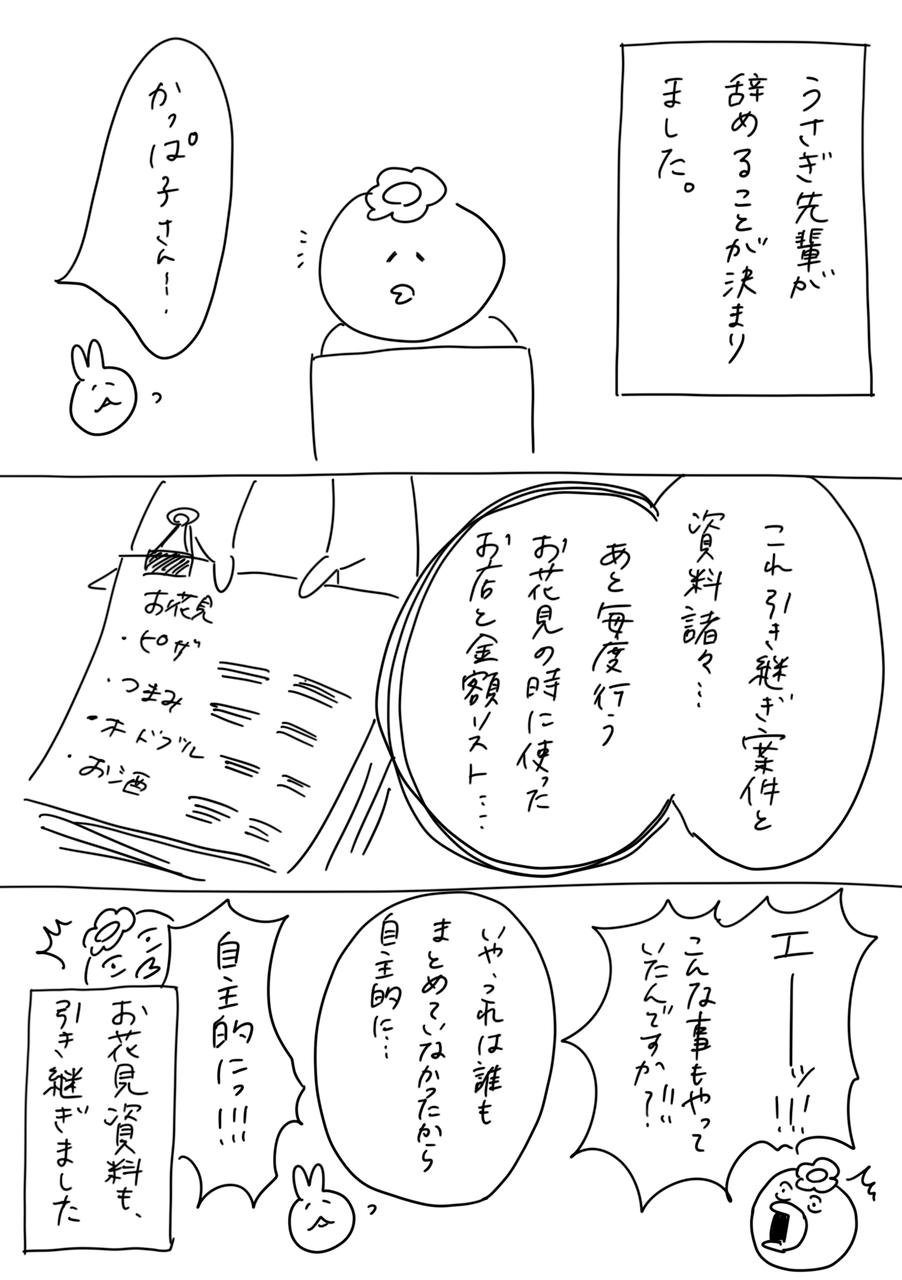 うさぎ先輩が
辞めることが決まり
ました。
かっぱ子さん〜・
これ引き継ぎ案件と
資料諸々…
あと毎度行う
お花見の時に使った
お店と金額リスト……
お花見
・ピザ
・つまみ
・オドブル
・お酒
エーーッ!!!
こんな事もやって
いたんですか?!!!
いや、これは誰も
まとめていなかったから
自主的に…
自主的にっ!!!
お花見資料も、
引き継ぎました